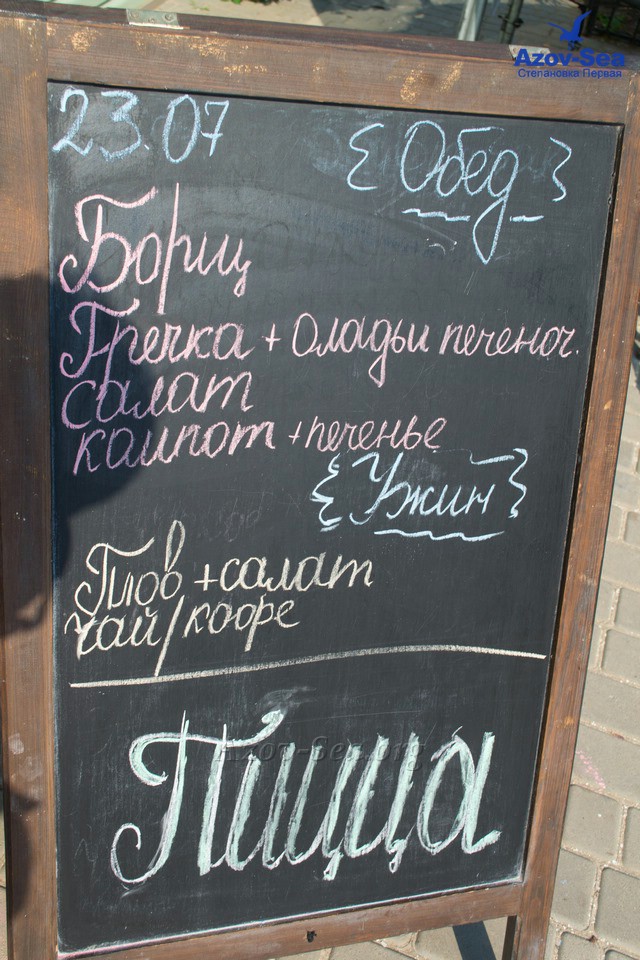 Azov-Sea
Степановка Первая
23.07
{Обед}
Борщ
Гречка + Оладьи печеноч.
салат
компот + печенье
{Ужин}
Плов + салат
чай/кофе
Пицца
Azov-Sea.org